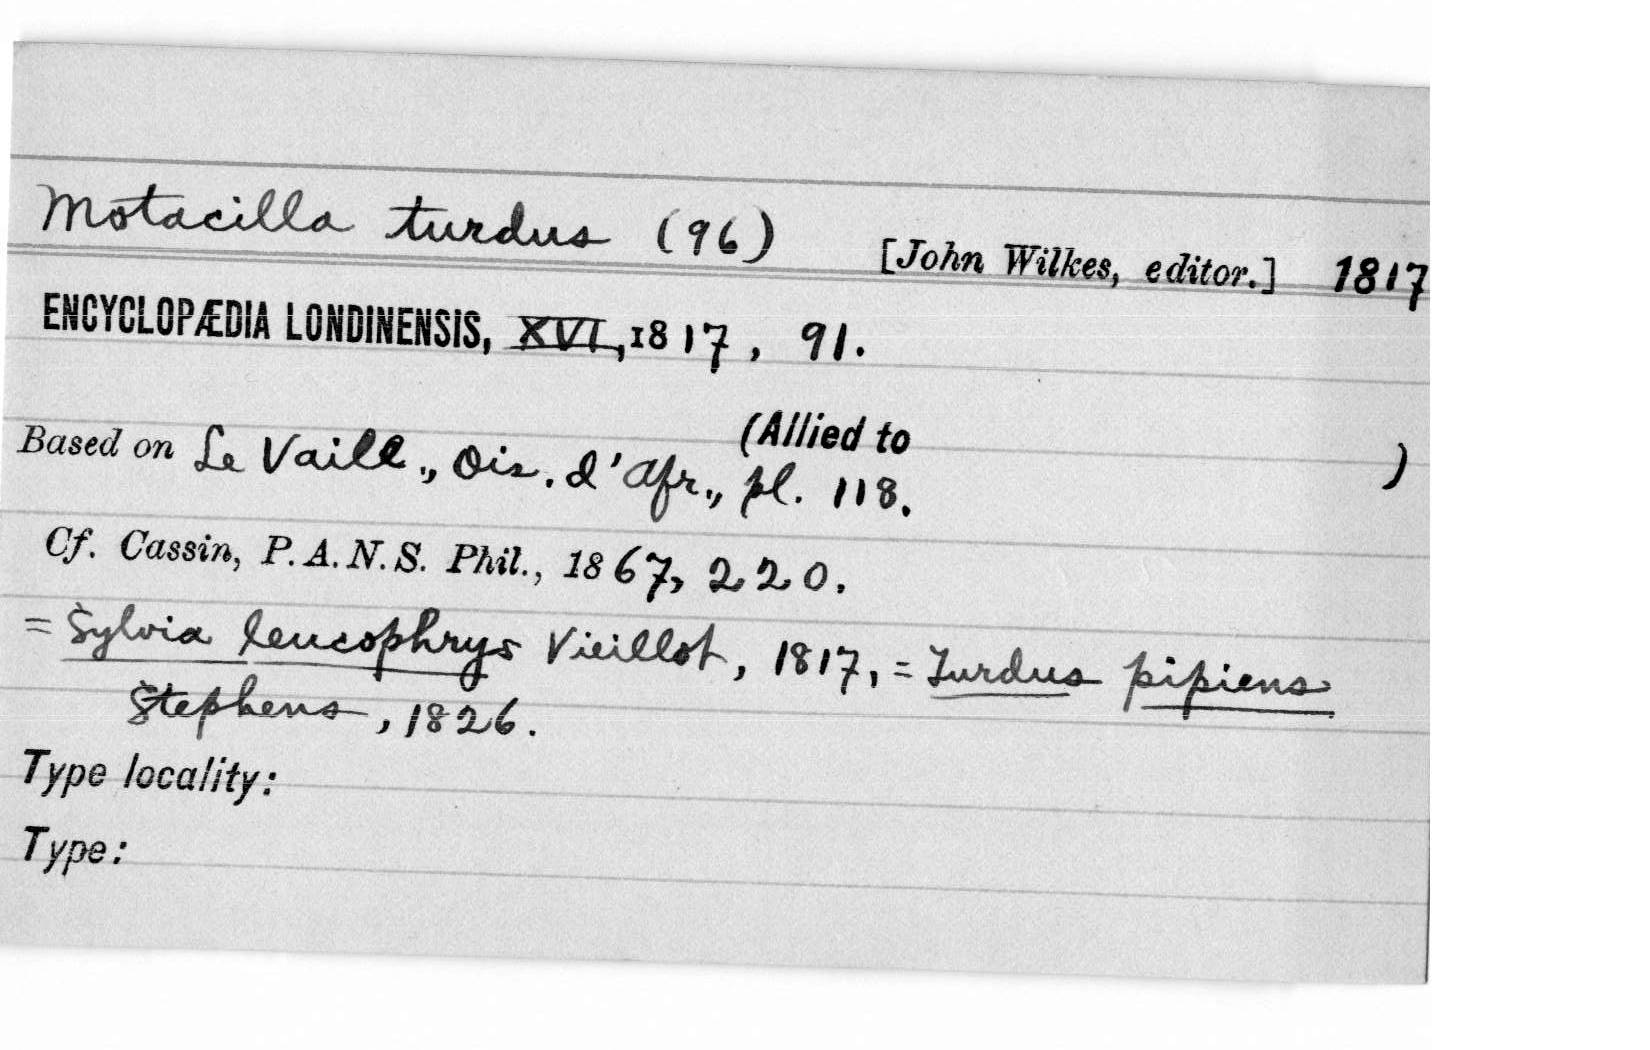 Motacilla turdus (96) [John Wilkes, editor.] 1817
ENCYCLOPÆDIA LONDINENSIS, XVI, 1817, 91.
(Allied to )
Based on Le Vaill., Ois. d'Afr., pl. 118.
Cf. Cassin, P.A.N.S. Phil., 1867, 220.
= Sylvia leucophrys Vieillot, 1817, = Turdus pipiens
Stephens, 1826.
Type locality:
Type: